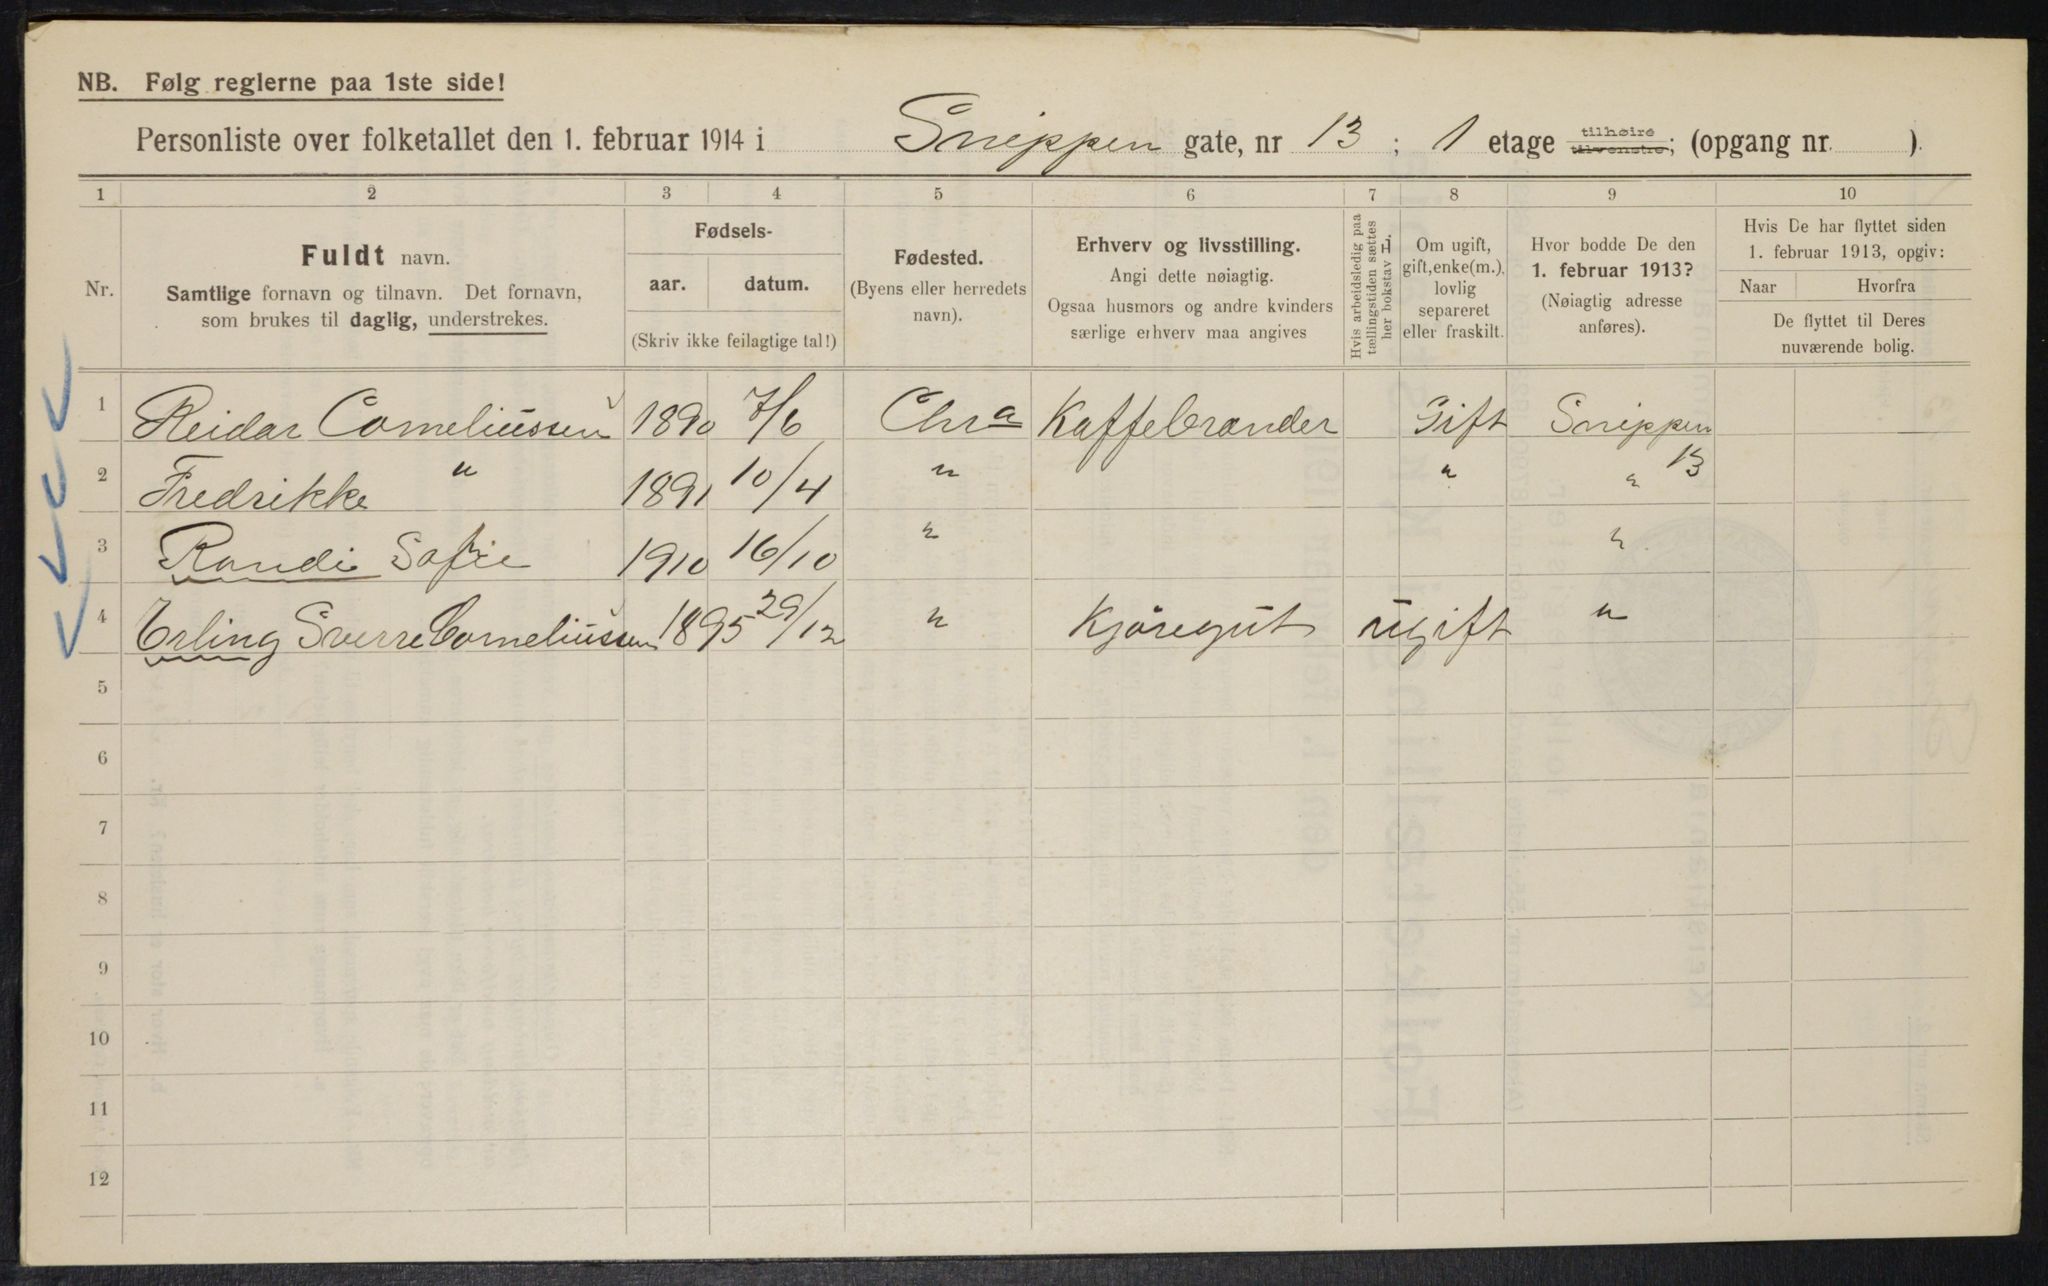 NB. Følg reglerne paa 1ste side!
Personliste over folketallet den 1. februar 1914 i Snippen gate, nr 13 ; 1 etage tilhøire tilvenstre; (opgang nr. ).
1 2 3 4 5 6 7 8 9 10
Nr.
Fuldt navn.
Samtlige fornavn og tilnavn. Det fornavn,
som brukes til daglig, understrekes.
Fødsels-
aar. datum.
(Skriv ikke feilagtige tal!)
Fødested.
(Byens eller herredets
navn).
Erhverv og livsstilling.
Angi dette nøiagtig.
Ogsaa husmors og andre kvinders
særlige erhverv maa angives
Hvis arbeidsledig paa
tællingstiden sættes
her bokstav L.
Om ugift,
gift, enke(m.),
lovlig
separeret
eller fraskilt.
Hvor bodde De den
1. februar 1913?
(Nøiagtig adresse
anføres).
Hvis De har flyttet siden
1. februar 1913, opgiv:
Naar Hvorfra
De flyttet til Deres
nuværende bolig.
1 Reidar Corneliussen 1890 7/6 Chra Kaffebrander Gift Snippen 13
2 Fredrikke " 1891 10/4 " " "
3 Randi Sofie 1910 16/10 " "
4 Erling Sverre Corneliussen 1895 29/12 " Kjøregut ugift "
5
6
7
8
9
10
11
12